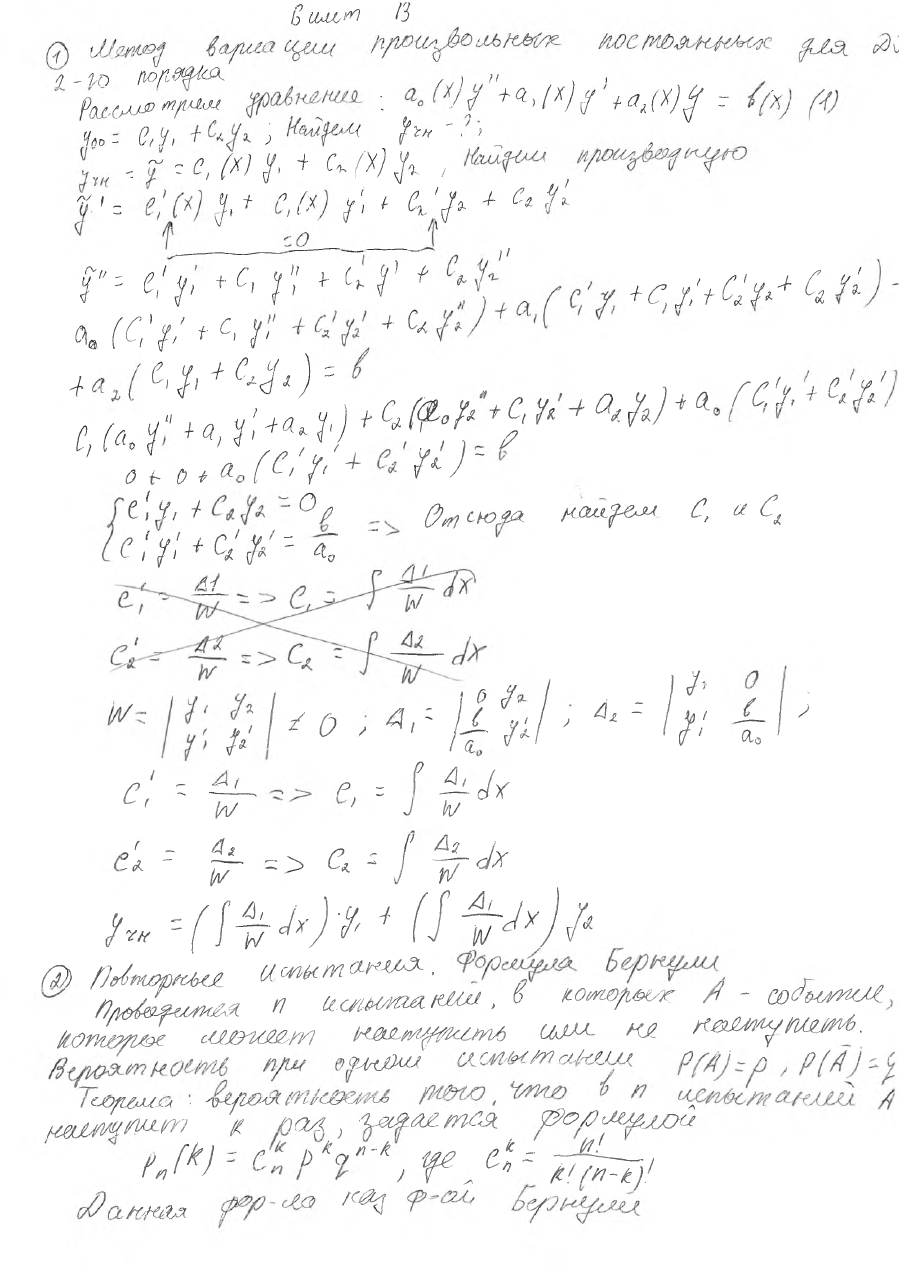 Билет 13
① Метод вариации произвольных постоянных для ДУ
2-го порядка
Рассмотрим уравнение: a₀(x)y'' + a₁(x)y' + a₂(x)y = b(x) (1)
y₀₀ = C₁y₁ + C₂y₂ ; Найдем yчн - ?;
yчн = ỹ = C₁(x)y₁ + C₂(x)y₂ , Найдем производную
ỹ' = C₁'(x)y₁ + C₁(x)y₁' + C₂'y₂ + C₂y₂'
=0
ỹ'' = C₁'y₁' + C₁y₁'' + C₂'y' + C₂y₂''
a₀(C₁'y₁' + C₁y₁'' + C₂'y₂' + C₂y₂'') + a₁(C₁'y₁ + C₁y₁' + C₂'y₂ + C₂y₂') -
+ a₂(C₁y₁ + C₂y₂) = b
C₁(a₀y₁'' + a₁y₁' + a₂y₁) + C₂(a₀y₂'' + C₁y₂' + a₂y₂) + a₀(C₁'y₁' + C₂'y₂')
0 + 0 + a₀(C₁'y₁' + C₂'y₂') = b
{C₁'y₁ + C₂y₂ = 0
{C₁'y₁' + C₂'y₂' = b/a₀ => Отсюда найдем C₁ и C₂
C₁' = Δ1/W => C₁ = ∫ Δ₁/W dx
C₂' = Δ2/W => C₂ = ∫ Δ₂/W dx
W = |y₁ y₂; y₁' y₂'| ≠ 0 ; Δ₁ = |0 y₂; b/a₀ y₂'| ; Δ₂ = |y₁ 0; y₁' b/a₀| ;
C₁' = Δ₁/W => C₁ = ∫ Δ₁/W dx
C₂' = Δ₂/W => C₂ = ∫ Δ₂/W dx
yчн = (∫ Δ₁/W dx)·y₁ + (∫ Δ₁/W dx) y₂
② Повторные испытания. Формула Бернули
Проводится n испытаний, в которых A - событие,
которое может наступить или не наступить.
Вероятность при одном испытании P(A)=p , P(Ā)=q
Теорема: вероятность того, что в n испытаний A
наступит k раз, задается формулой
Pₙ(k) = Cₙᵏ pᵏ qⁿ⁻ᵏ, где Cₙᵏ = n!/k!(n-k)!
Данная фор-ла наз ф-ой Бернули